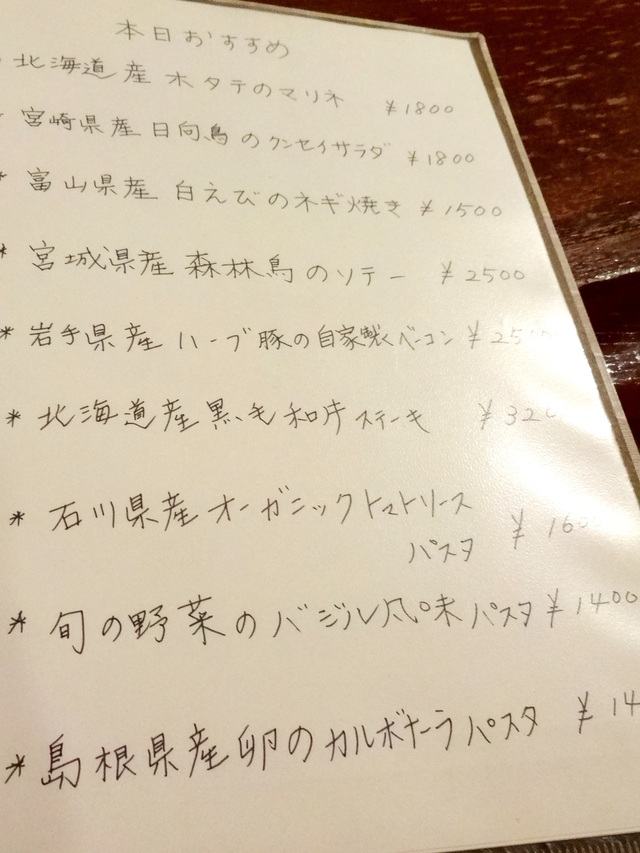 本日おすすめ
北海道産 ホタテのマリネ ¥1800
宮崎県産 日向鳥のクンセイサラダ ¥1800
* 富山県産 白えびのネギ焼き ¥1500
* 宮城県産 森林鳥のソテー ¥2500
* 岩手県産 ハーブ豚の自家製ベーコン
* 北海道産黒毛和牛ステーキ
* 石川県産オーガニックトマトソース
パスタ
* 旬の野菜のバジル風味パスタ ¥1400
* 島根県産卵のカルボナーラパスタ